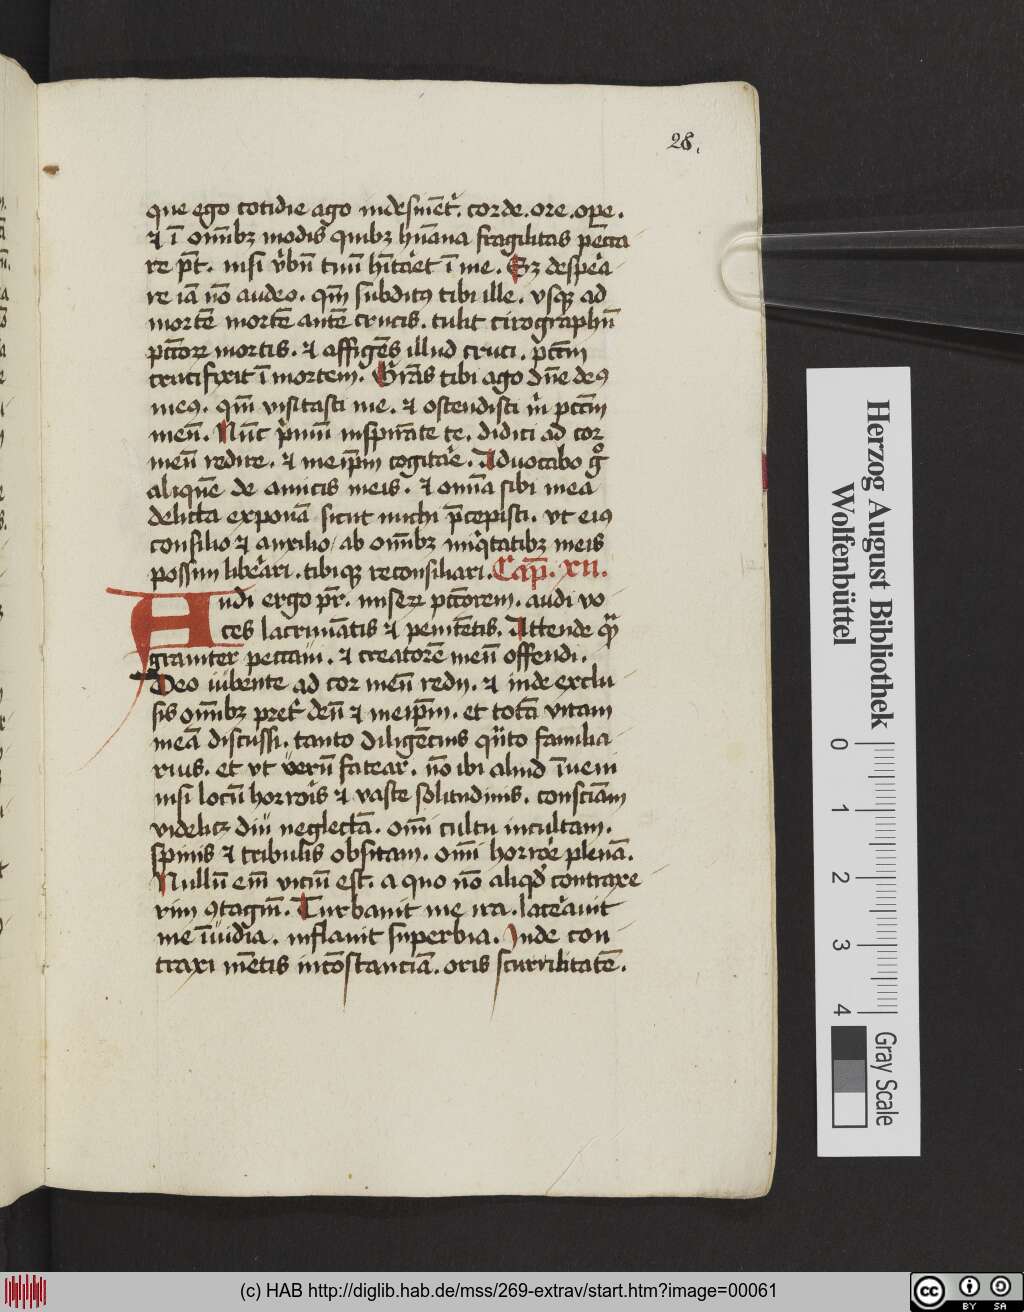 28.
que ego cotidie ago indesinēt᷑. corde. ore. oꝑe.
⁊ ī om̄ibꝫ modis quibꝫ hūana fragilitas pecca
re pōt. nisi v᷑bū tuū hītar᷑et ī me. Sꝫ despe᷑a
re iā nō audeo. qm̄ subditꝰ tibi ille. vsqꝫ ad
mortē mortē autē crucis. tulit cirographū
pcc̄oꝝ mortis. ⁊ affigēs illud cruci. pcc̄m
crucifixit ī mortem. Gr̄as tibi ago dn̄e deꝰ
meꝰ. qm̄ visitasti me. ⁊ ostendisti m̄ pcc̄m
meū. Nūc p᷑mū inspirāte te. didici ad cor
meū redire. ⁊ meip̄m cogitar᷑e. Aduocabo gͦ
aliquē de amicis meis. ⁊ om̄ia sibi mea
delicta exponā sicut michi p̄cepisti. vt eiꝰ
consilio ⁊ auxilio ab om̄ibꝫ iniq̇tatibꝫ meis
possim libe᷑ari. tibiqꝫ reconsiliari. Cap̄. xii.
Audi ergo pr̄. miseꝝ pcc̄orem. audi vo
ces lacrimātis ⁊ penitētis. Attende qͣ
grauiter peccaui. ⁊ creatorē meū offendi.
Deo iubente ad cor meū redij. ⁊ inde exclu
sis om̄ibꝫ pret᷑ deū ⁊ meip̄m. et totā vitam
meā discussi. tanto diligēcius qn̄to familia
rius. et vt verū fatear. nō ibi aliud īueni
nisi locū horroris ⁊ vaste solitudinis. consciam
videlicꝫ diu neglectā. om̄i cultu incultam.
spinis ⁊ tribulis obsitam. om̄i horror᷑e plenā.
Nullū em̄ viciū est. a quo nō aliqd̓ contraxe
rim ꝯtagiū. Turbauit me ira. lace᷑auit
me īuidia. inflauit superbia. Inde con
traxi mētis incōstanciā. oris scurrilitatē.
Herzog August Bibliothek
Wolfenbüttel
0 1 2 3 4
Gray Scale
(c) HAB http://diglib.hab.de/mss/269-extrav/start.htm?image=00061
cc BY SA